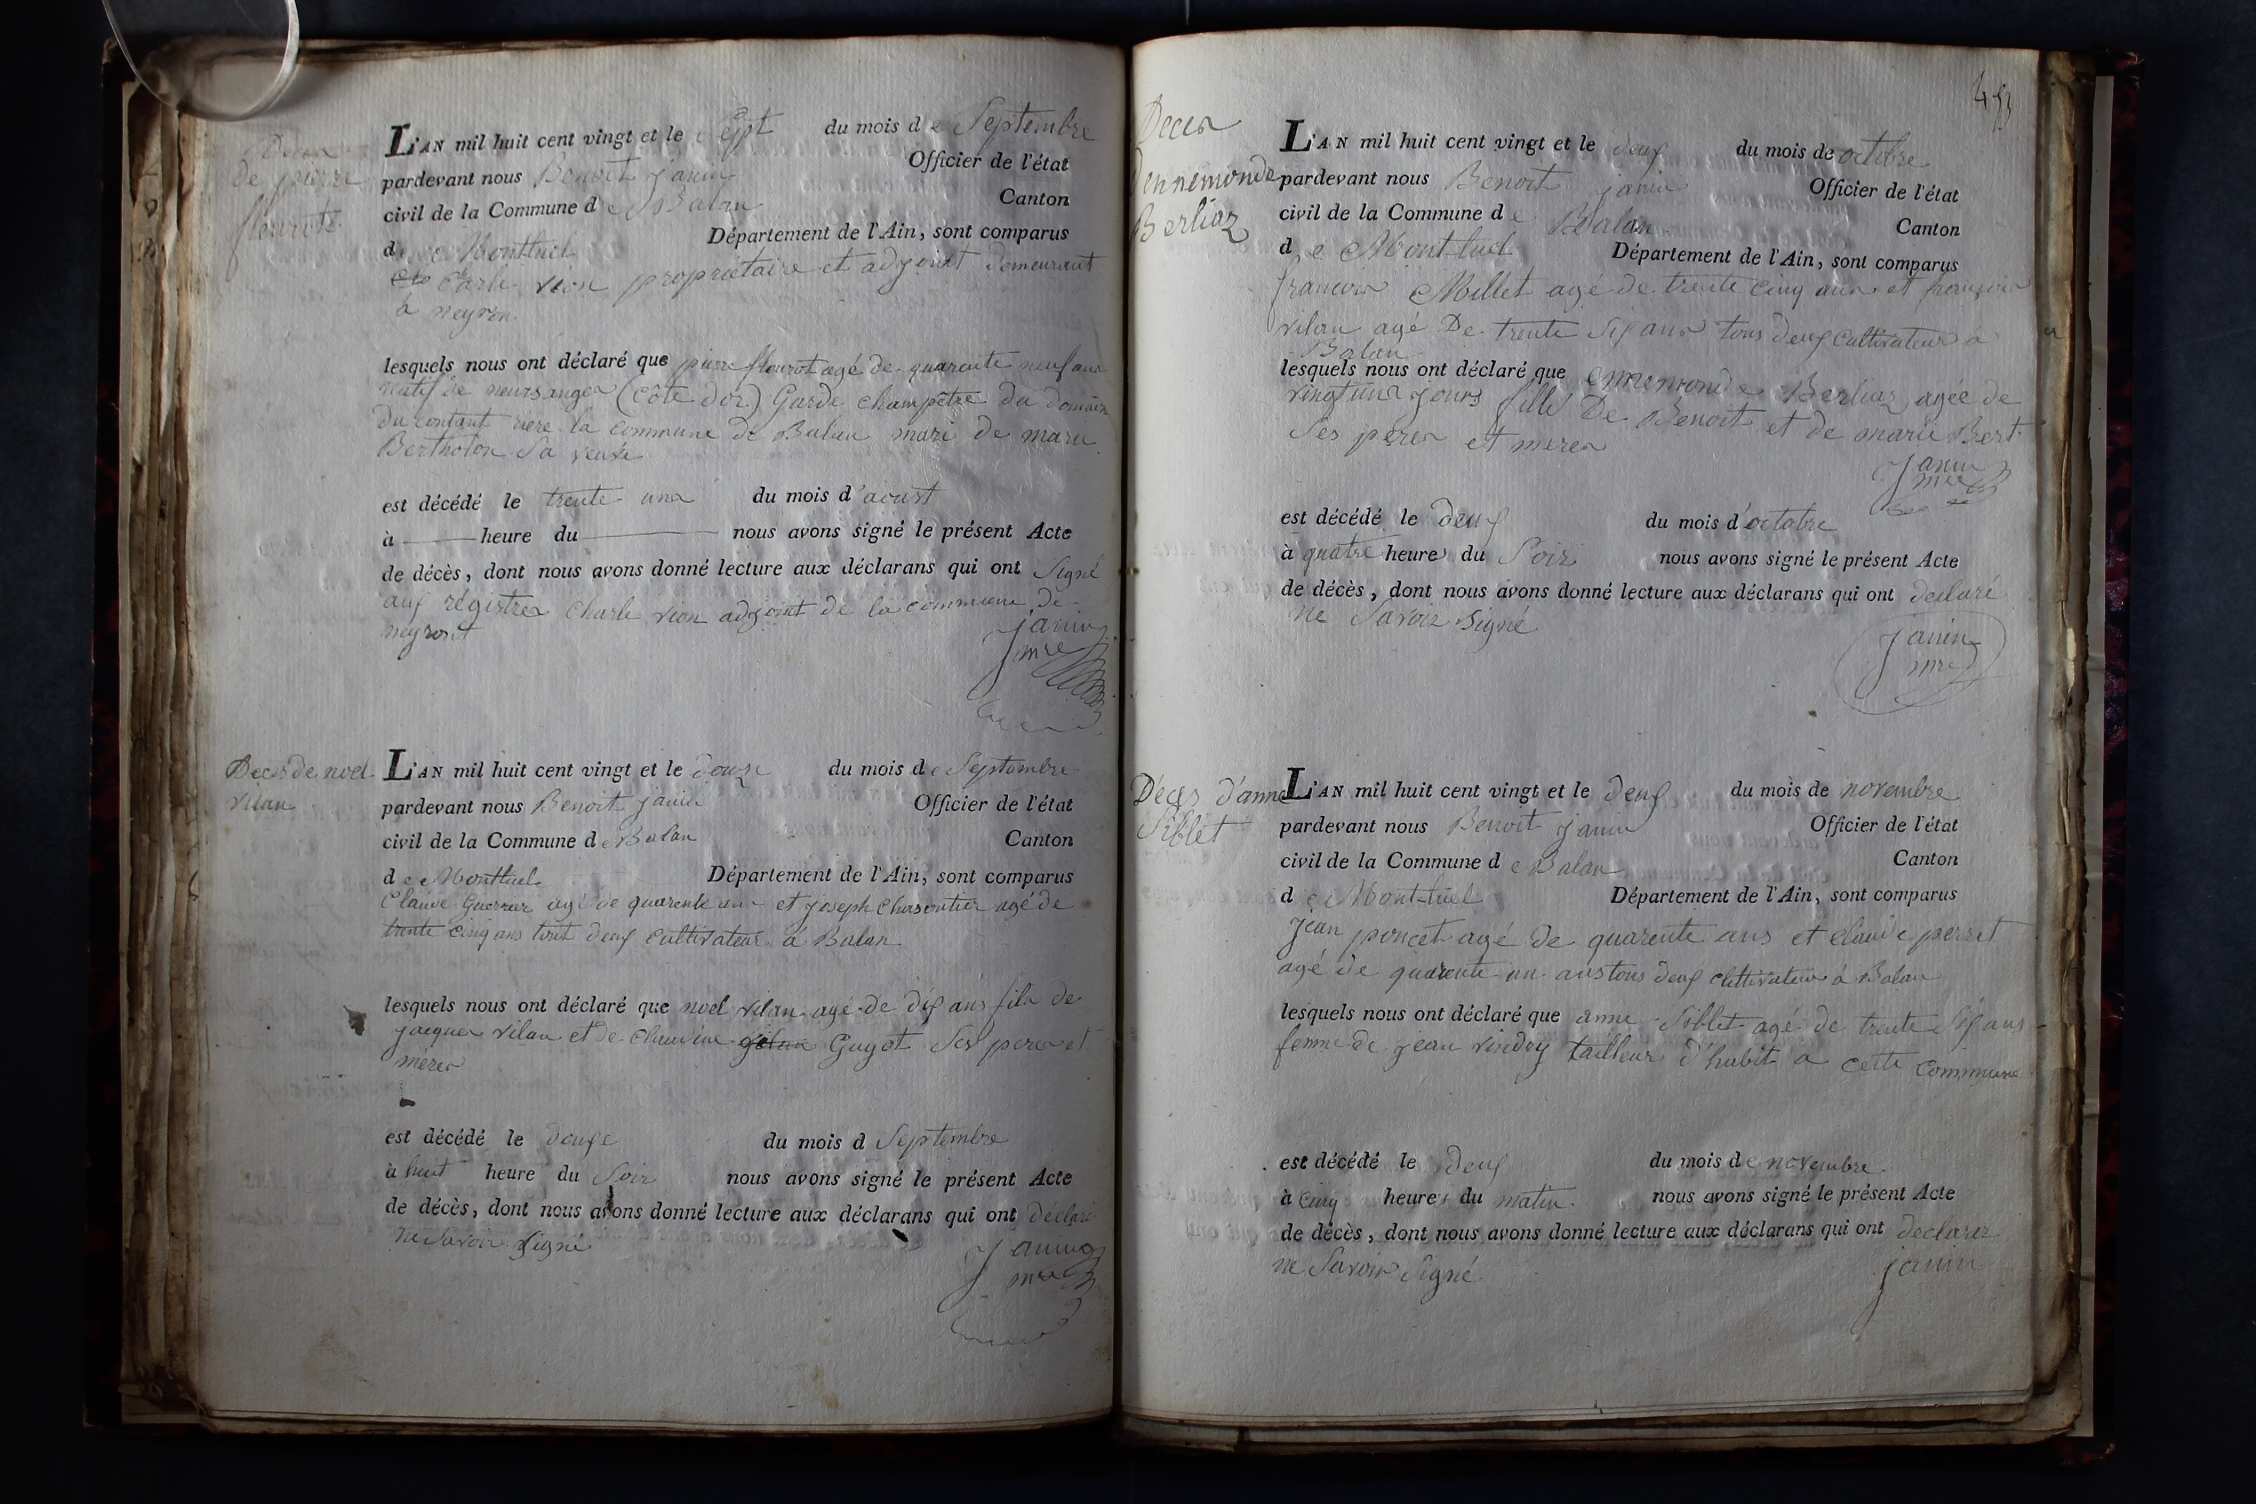 Deces
de pierre
fleurot
L'AN mil huit cent vingt et le Sept du mois de Septembre
pardevant nous Benoit janin Officier de l'état
civil de la Commune de Balan Canton
de Montluel Département de l'Ain, sont comparus
Carle vion propriétaire et adjoint demeurant
à neyron
lesquels nous ont déclaré que pierre fleurot agé de quarente neuf ans
natif de (côte dor) Garde champêtre du Domain
Du contant riere la commune de Balan mari de marie
Bertholon Sa veuve
est décédé le trente una du mois d'aoust
à heure du nous avons signé le présent Acte
de décès, dont nous avons donné lecture aux déclarans qui ont Signé
auf régistres Charle vion adjoint de la commune de
neyront
janin
mre
Deces de noel
vilan
L'AN mil huit cent vingt et le douze du mois de Septembre
pardevant nous Benoit janin Officier de l'état
civil de la Commune de Balan Canton
de Montluel Département de l'Ain, sont comparus
Claude Guerrier agé de quarente un et joseph Charvontier agé de
trente cinq ans tout deux cultivateur à Balan
lesquels nous ont déclaré que noel vilan agé de dix ans fils de
jacques vilan et de Claudine Guyot Ses peres et
meres
est décédé le douze du mois d Septembre
à huit heure du Soir nous avons signé le présent Acte
de décès, dont nous avons donné lecture aux déclarans qui ont déclaré
ne Savoir Signé
janin
mre
453
Deces
D'ennemonde
Berlioz
L'AN mil huit cent vingt et le deux du mois de octobre
pardevant nous Benoit janin Officier de l'état
civil de la Commune de Balan Canton
de Mont-luel Département de l'Ain, sont comparus
francois Millet agé de trente cinq ans et françois
vilan agé De trente Six ans tous deux cultivateur à
Balan
lesquels nous ont déclaré que ennemonde Berlioz agée de
vingt una jours fille De Benoit et de marie Brert
Ses peres et meres
janin
mre
est décédé le deux du mois d'octobre
à quatre heures du Soir nous avons signé le présent Acte
de décès, dont nous avons donné lecture aux déclarans qui ont declaré
ne Savoir Signé
janin
mre
Déces d'anne
Siblet
L'AN mil huit cent vingt et le deux du mois de novembre
pardevant nous Benoit janin Officier de l'état
civil de la Commune de Balan Canton
de Mont-luel Département de l'Ain, sont comparus
jean poncet agé de quarente ans et claude perret
agé de quarente un ans tous deux cultivateur à Balan
lesquels nous ont déclaré que anne Siblet agé de trente Six ans
femme de jean vindry tailleur d'habit a cette commune
est décédé le deux du mois de novembre
à cinq heures du matin nous avons signé le présent Acte
de décès, dont nous avons donné lecture aux déclarans qui ont declarer
ne Savoir Signé
janin